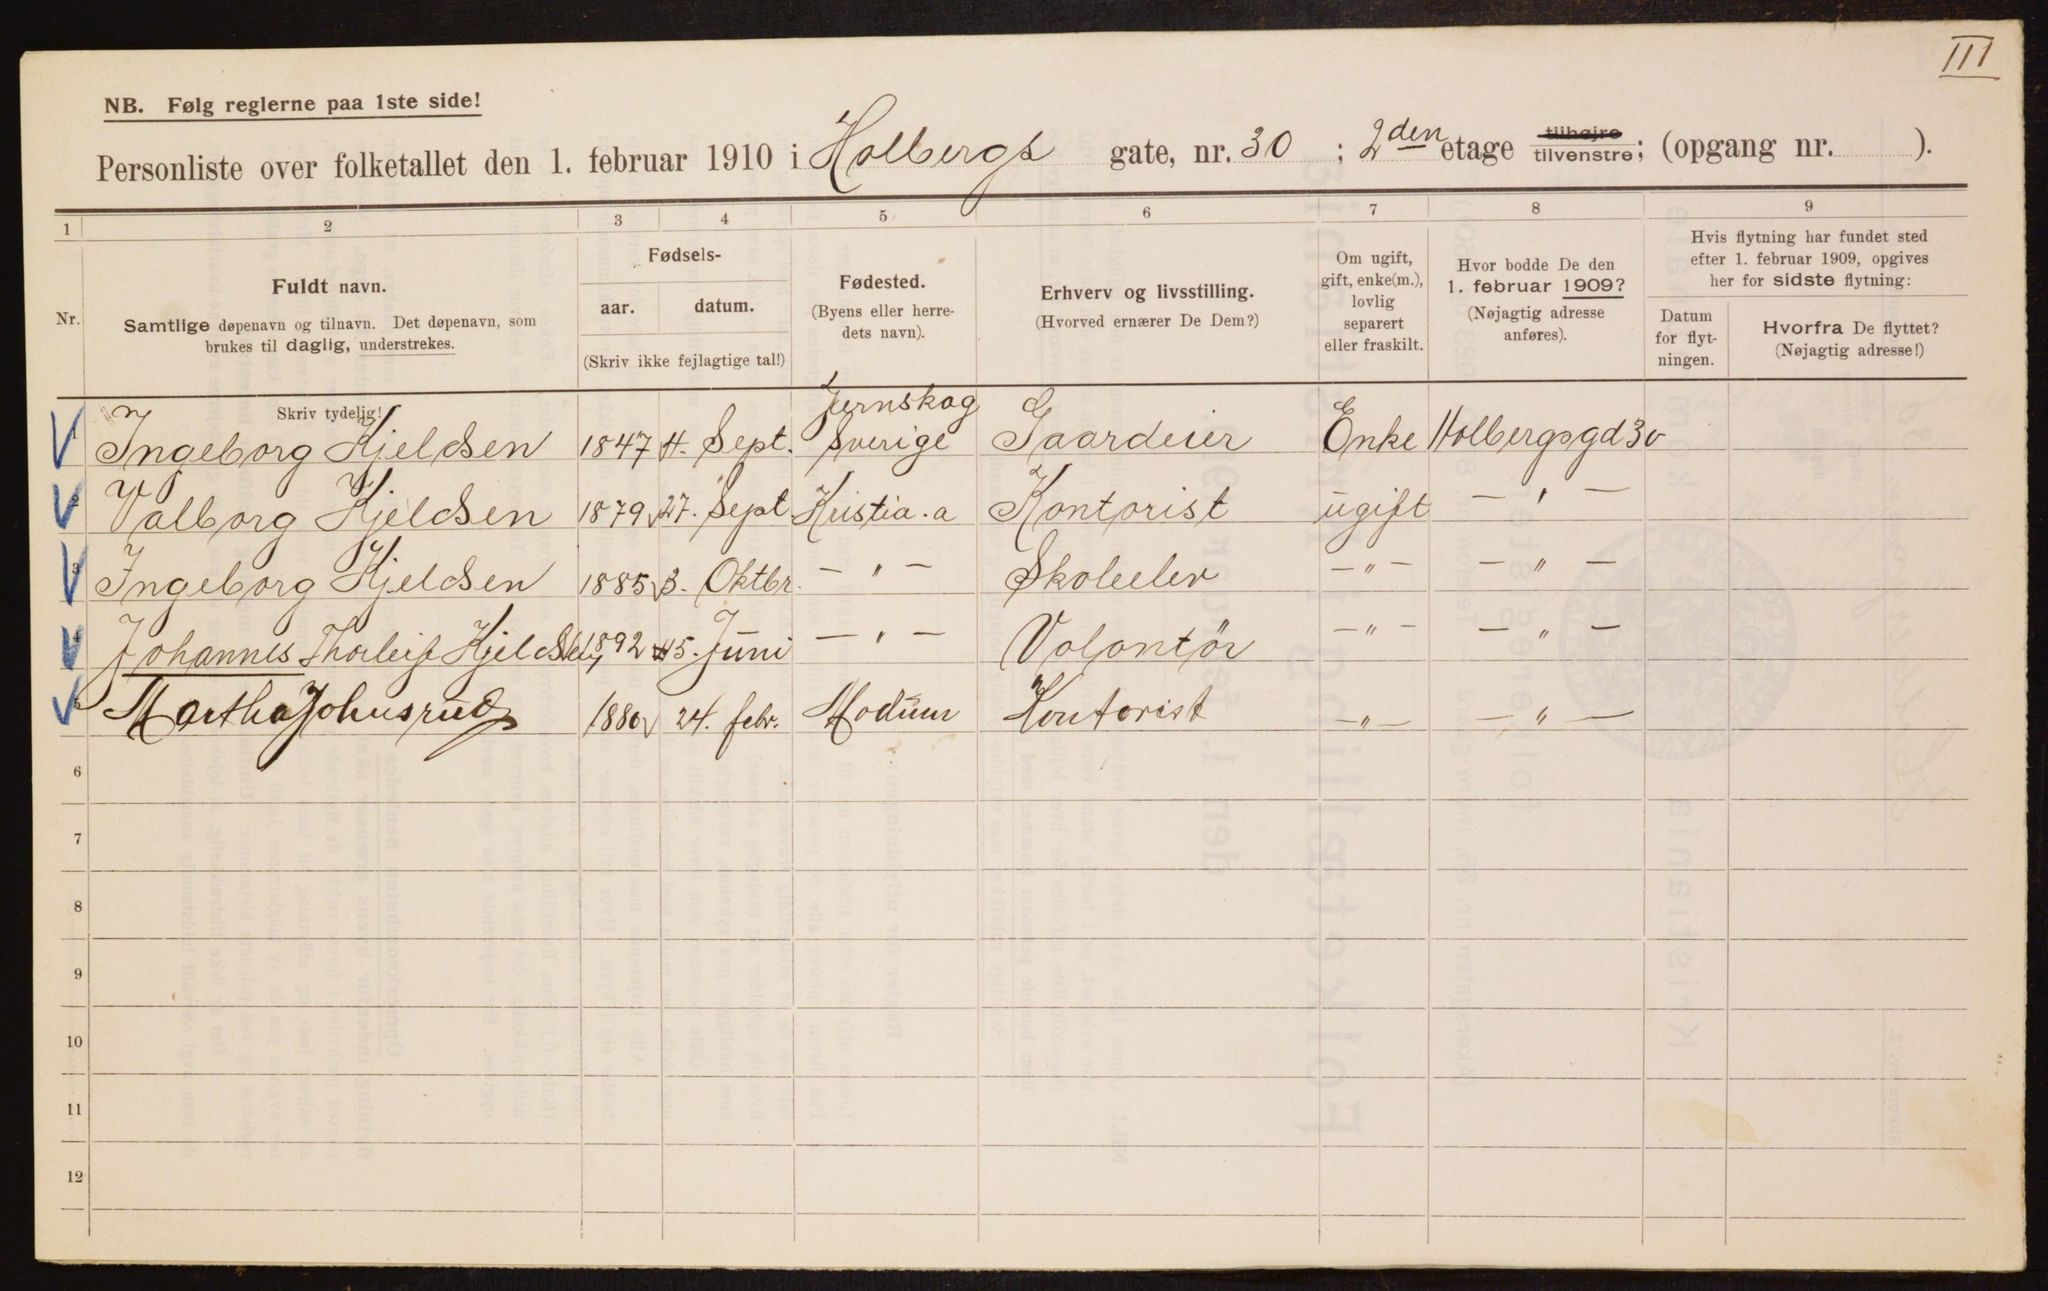 III
NB. Følg reglerne paa 1ste side!
Personliste over folketallet den 1. februar 1910 i Holbergs gate, nr. 30 ; 2den etage tilhøjre tilvenstre; (opgang nr. ).
1 2 3 4 5 6 7 8 9
Nr.
Fuldt navn.
Samtlige døpenavn og tilnavn. Det døpenavn, som
brukes til daglig, understrekes.
Fødsels-
aar. datum.
(Skriv ikke fejlagtige tal!)
Fødested.
(Byens eller herre-
dets navn).
Erhverv og livsstilling.
(Hvorved ernærer De Dem?)
Om ugift,
gift, enke(m.),
lovlig
separert
eller fraskilt.
Hvor bodde De den
1. februar 1909?
(Nøjagtig adresse
anføres).
Hvis flytning har fundet sted
efter 1. februar 1909, opgives
her for sidste flytning:
Datum
for flyt-
ningen.
Hvorfra De flyttet?
(Nøjagtig adresse!)
Skriv tydelig!
Jernskog
1 Ingeborg Kjeldsen 1847 4. Sept. Sverige Gaardeier Enke Holbergsgd 30
2 Valborg Kjeldsen 1879 27. Sept Kristia.a Kontorist ugift — " —
3 Ingeborg Kjeldsen 1885 3. Oktbr. — " — Skoleelev — " — — " —
4 Johannes Thorleif Kjeldsen 1892 15. Juni — " — Volontör — " — — " —
5 Martha Johnsrud 1880 24. febr. Modum Kontorist — " — — " —
6
7
8
9
10
11
12